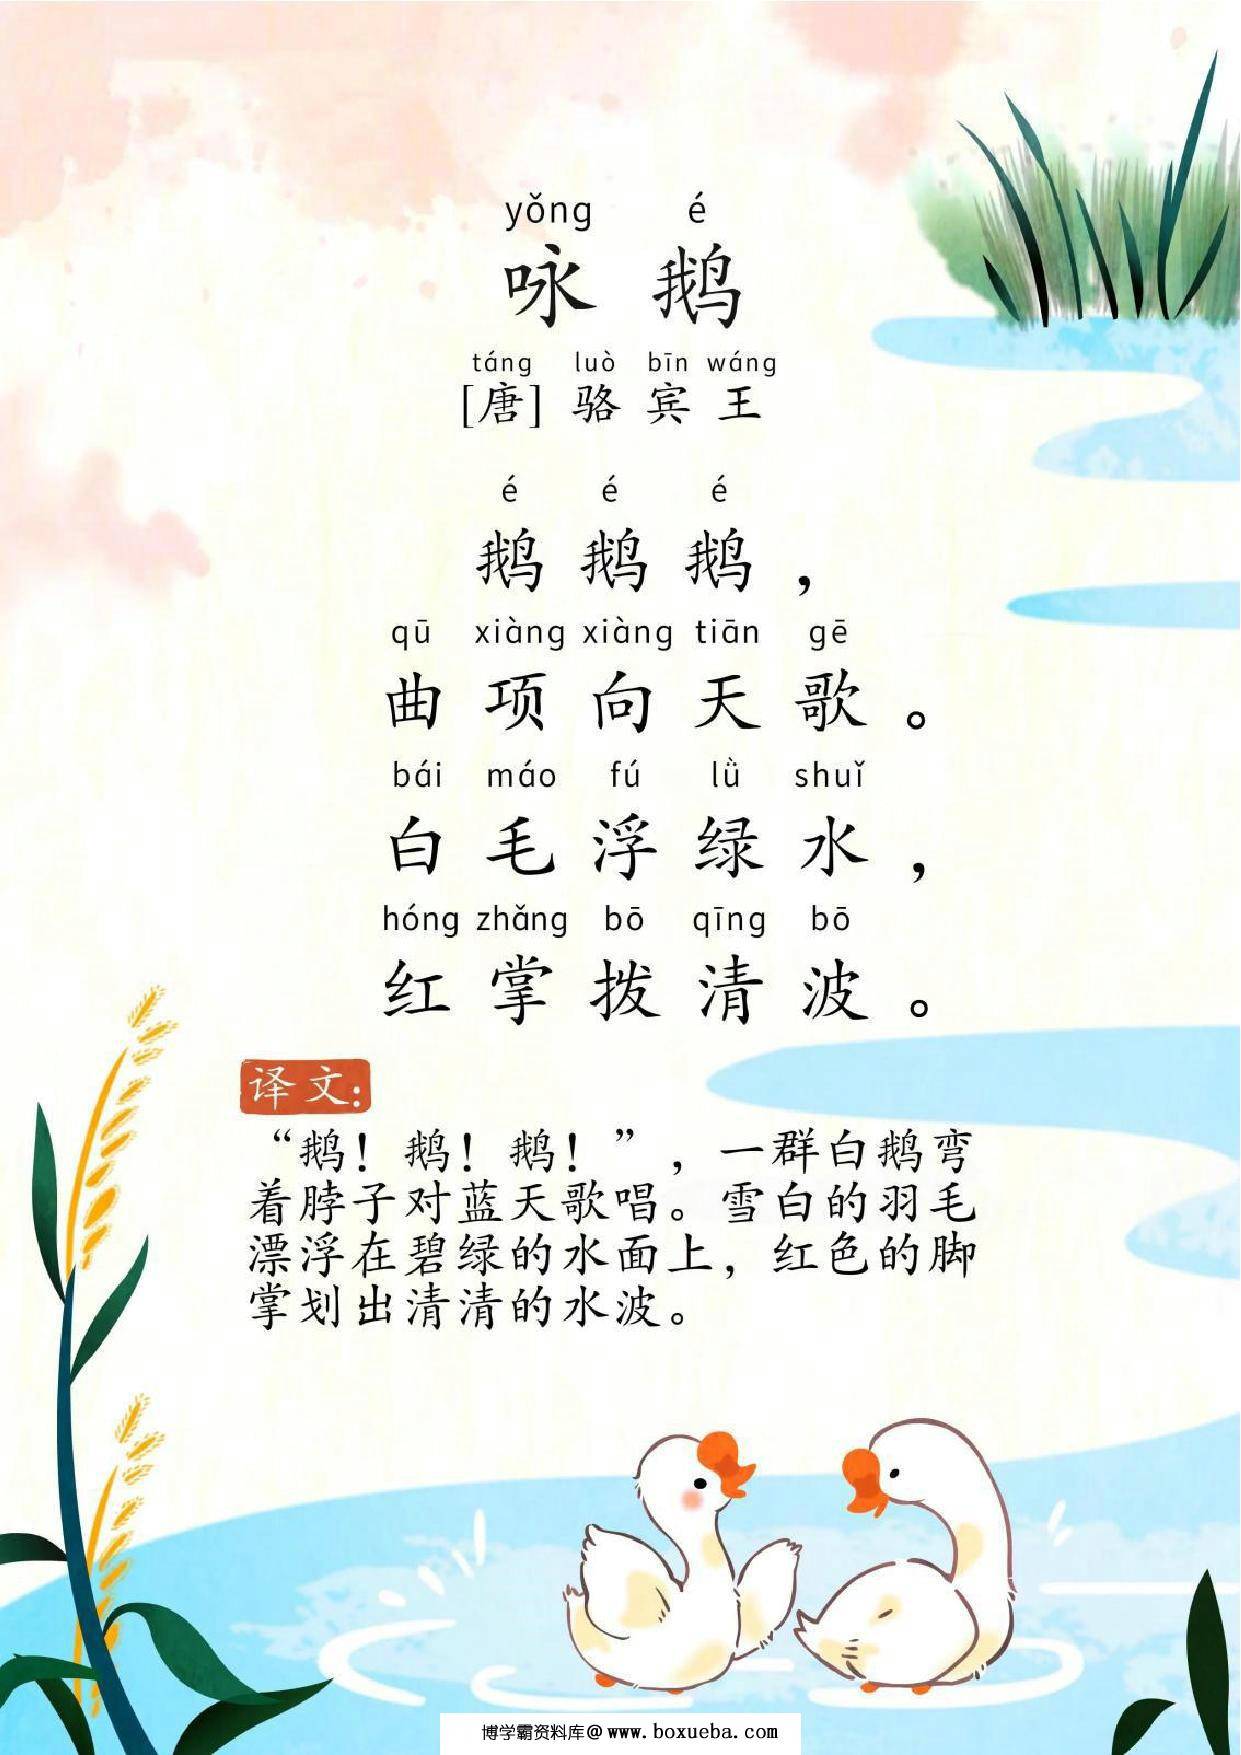 yǒng é
咏 鹅
táng luò bīn wáng
[唐] 骆 宾 王
é é é
鹅 鹅 鹅 ，
qū xiàng xiàng tiān gē
曲 项 向 天 歌 。
bái máo fú lǜ shuǐ
白 毛 浮 绿 水 ，
hóng zhǎng bō qīng bō
红 掌 拨 清 波 。
译文:
“鹅！鹅！鹅！”，一群白鹅弯
着脖子对蓝天歌唱。雪白的羽毛
漂浮在碧绿的水面上，红色的脚
掌划出清清的水波。
博学霸资料库@www.boxueba.com